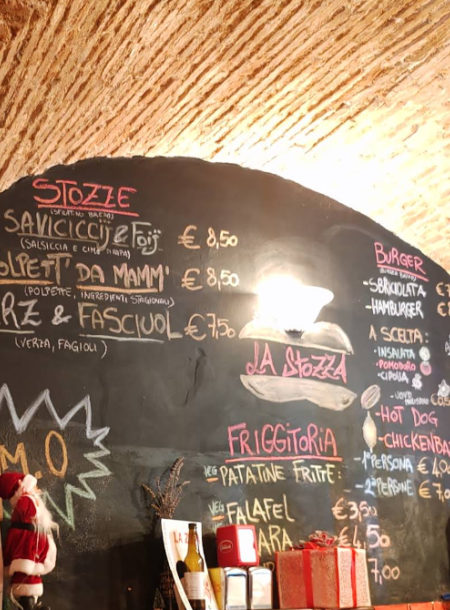 STOZZE
SAVICICCIJ & FOIJ € 8,50
(SALSICCIA E CIME DI RAPA)
OLPETT' DA MAMM' € 8,50
(POLPETTE, INGREDIENTI STAGIONALI)
RZ & FASCIUOL € 7,50
(VERZA, FAGIOLI)
M.O
LA STOZZA
FRIGGITORIA
VEG PATATINE FRITTE:
-1 PERSONA € 4,00
-2 PERSONE € 7,0
VEG FALAFEL € 3,50
ARA € 4,50
7,00
BURGER
-SBRICIOLATA €
-HAMBURGER €
A SCELTA:
-INSALATA
-POMODORO
-CIPOLLA
-HOT DOG
-CHICKENBA